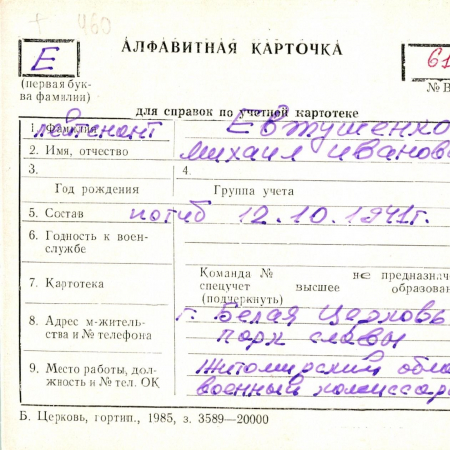 460
Е
АЛФАВИТНАЯ КАРТОЧКА
61
(первая бук-
ва фамилии)
№ В
для справок по учетной картотеке
1. Фамилия лейтенант Евтушенко
2. Имя, отчество Михаил Иванов
3. 4.
Год рождения Группа учета
5. Состав погиб 12.10.1941г.
6. Годность к воен-
службе
7. Картотека
Команда № не предназначе
спецучет высшее образова
(подчеркнуть)
8. Адрес м-житель-
ства и № телефона
г. Белая Церковь
парк славы
9. Место работы, дол-
жность и № тел. ОК
Житомирский обла
военный комиссар
Б. Церковь, гортип., 1985, з. 3589—20000